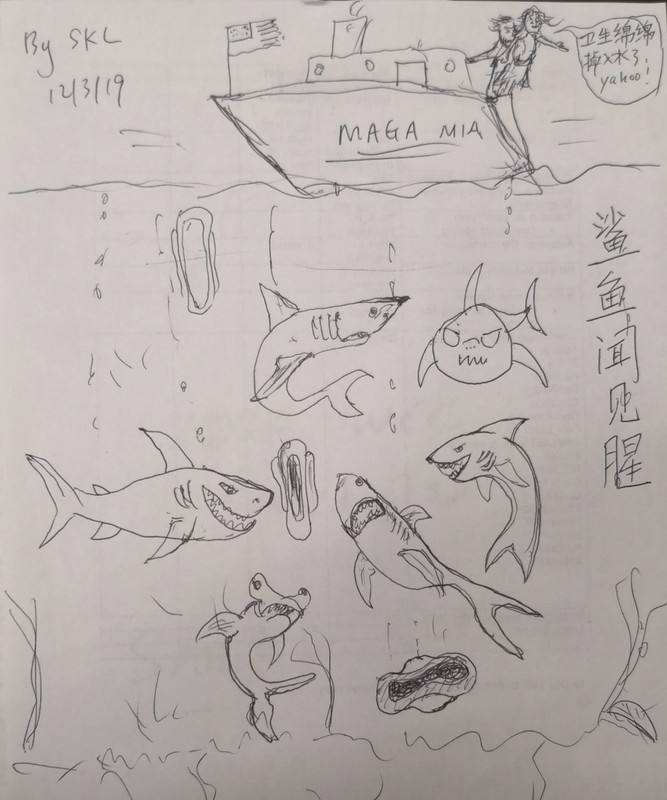 By SKL
12/3/19
卫生绵绵
掉入水了,
yahoo!
MAGA MIA
鲨鱼闻见腥